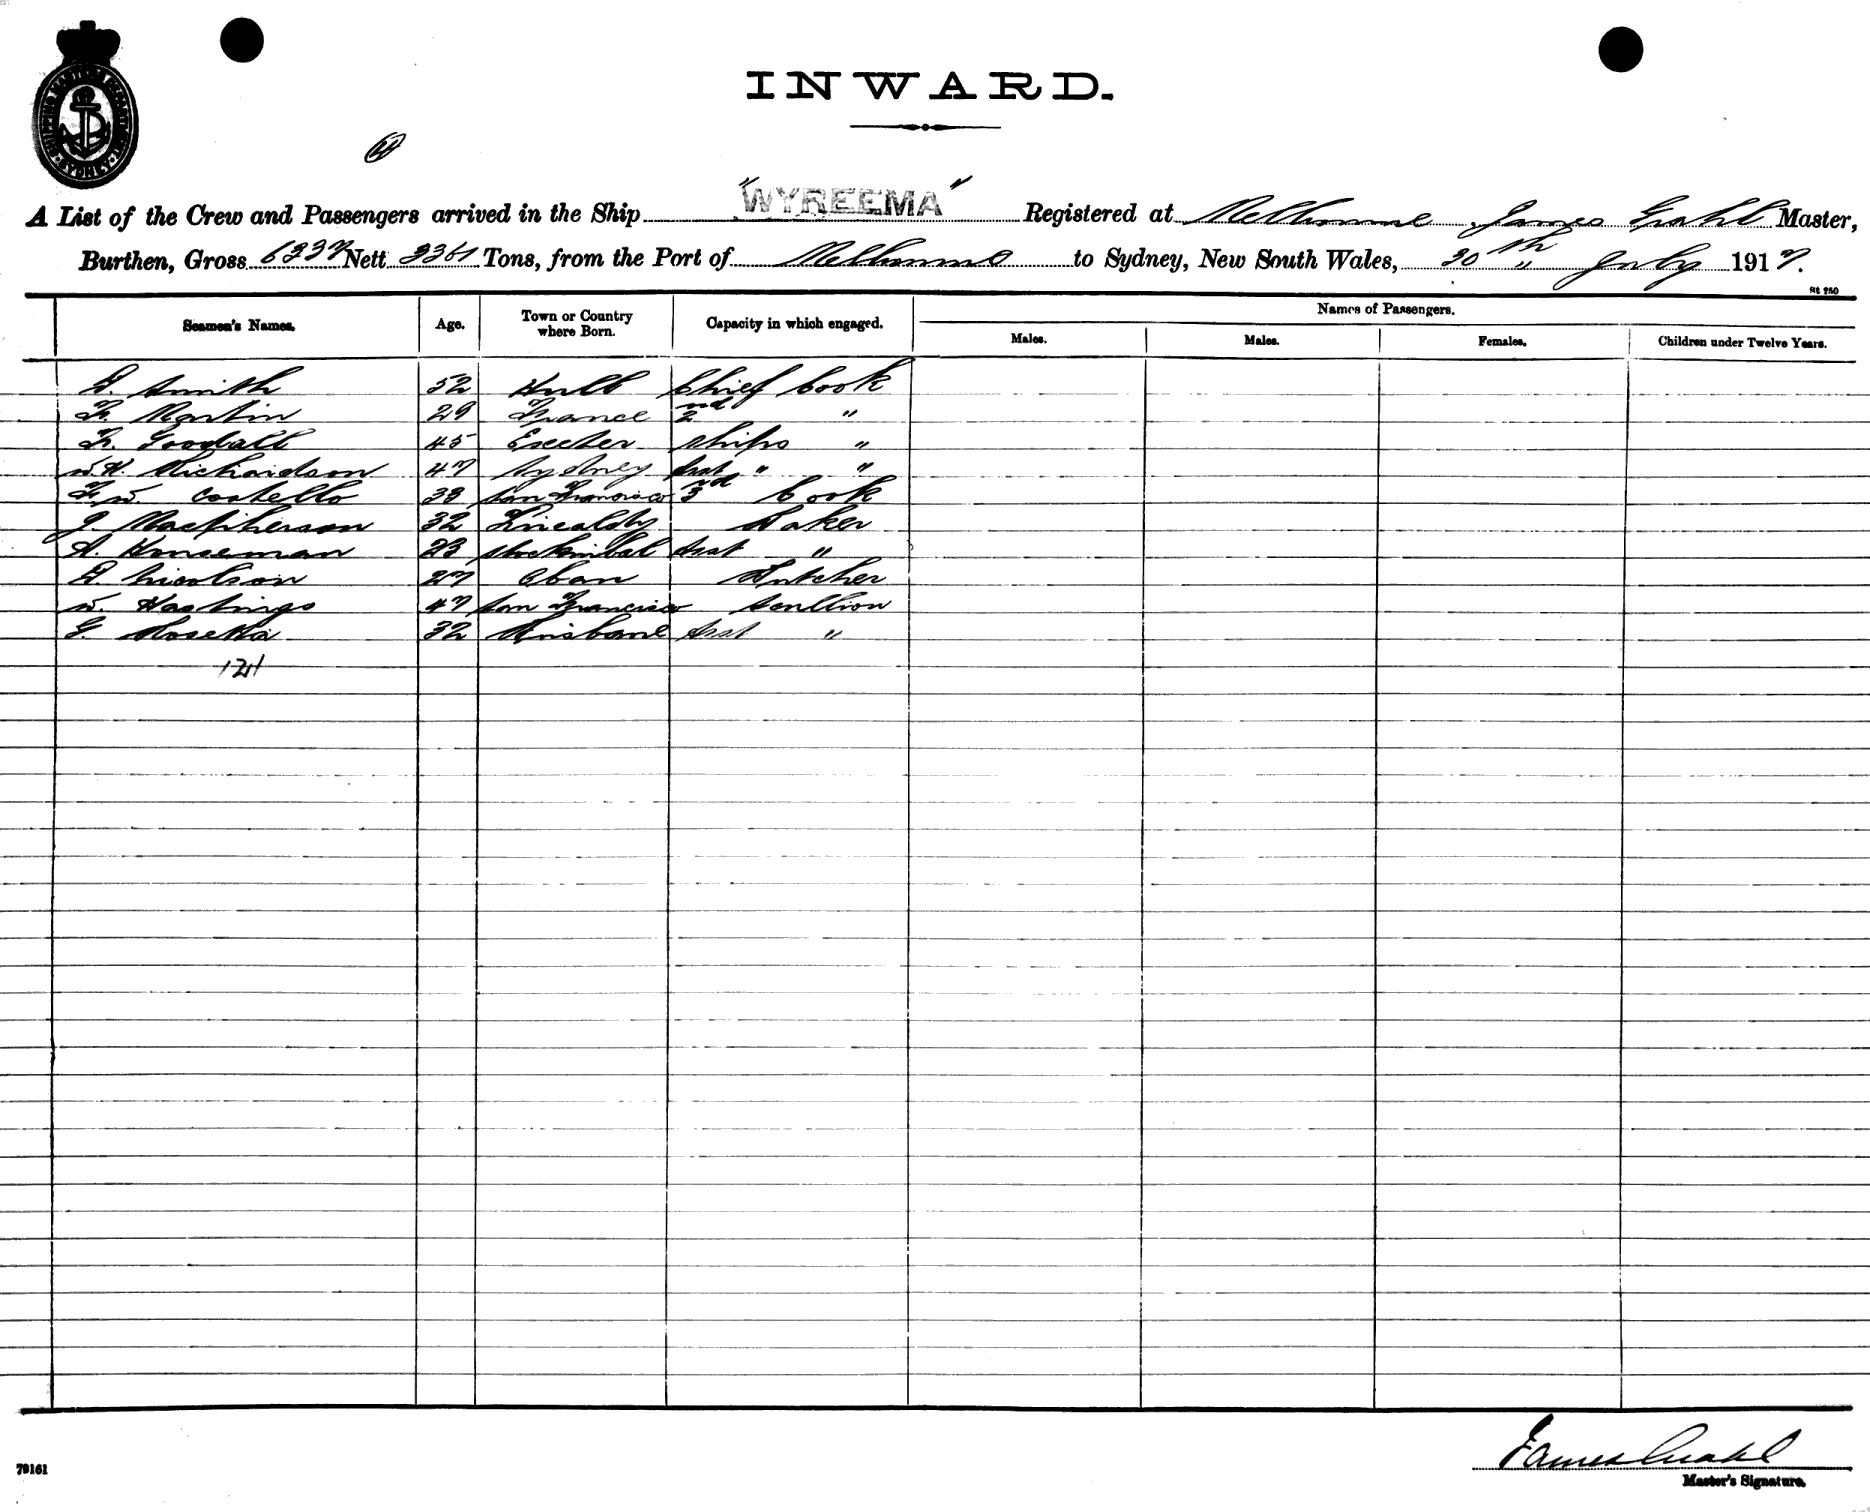 SHIPPING MASTER'S DEPARTMENT
SYDNEY
INWARD.
A List of the Crew and Passengers arrived in the Ship "WYREEMA" Registered at Melbourne, James Grahl Master,
Burthen, Gross 6337 Nett 3361 Tons, from the Port of Melbourne to Sydney, New South Wales, 30th July 1917.
St 250
Seamen's Names. Age. Town or Country where Born. Capacity in which engaged. Names of Passengers.
Males. Males. Females. Children under Twelve Years.
D. Smith 52 Hull Chief Cook
F. Martin 29 France 2nd "
F. Goodall 45 Exeter Ships "
W. H. Richardson 47 Sydney Asst " "
F. W. Costello 33 San Francisco 3rd Cook
J. Macpherson 32 Baker
A. 23 Asst "
D. Nicolson 27 Oban Butcher
W. Hastings 47 San Francisco Scullion
G. 32 Brisbane Asst "
121
James Grahl
Master's Signature.
79161